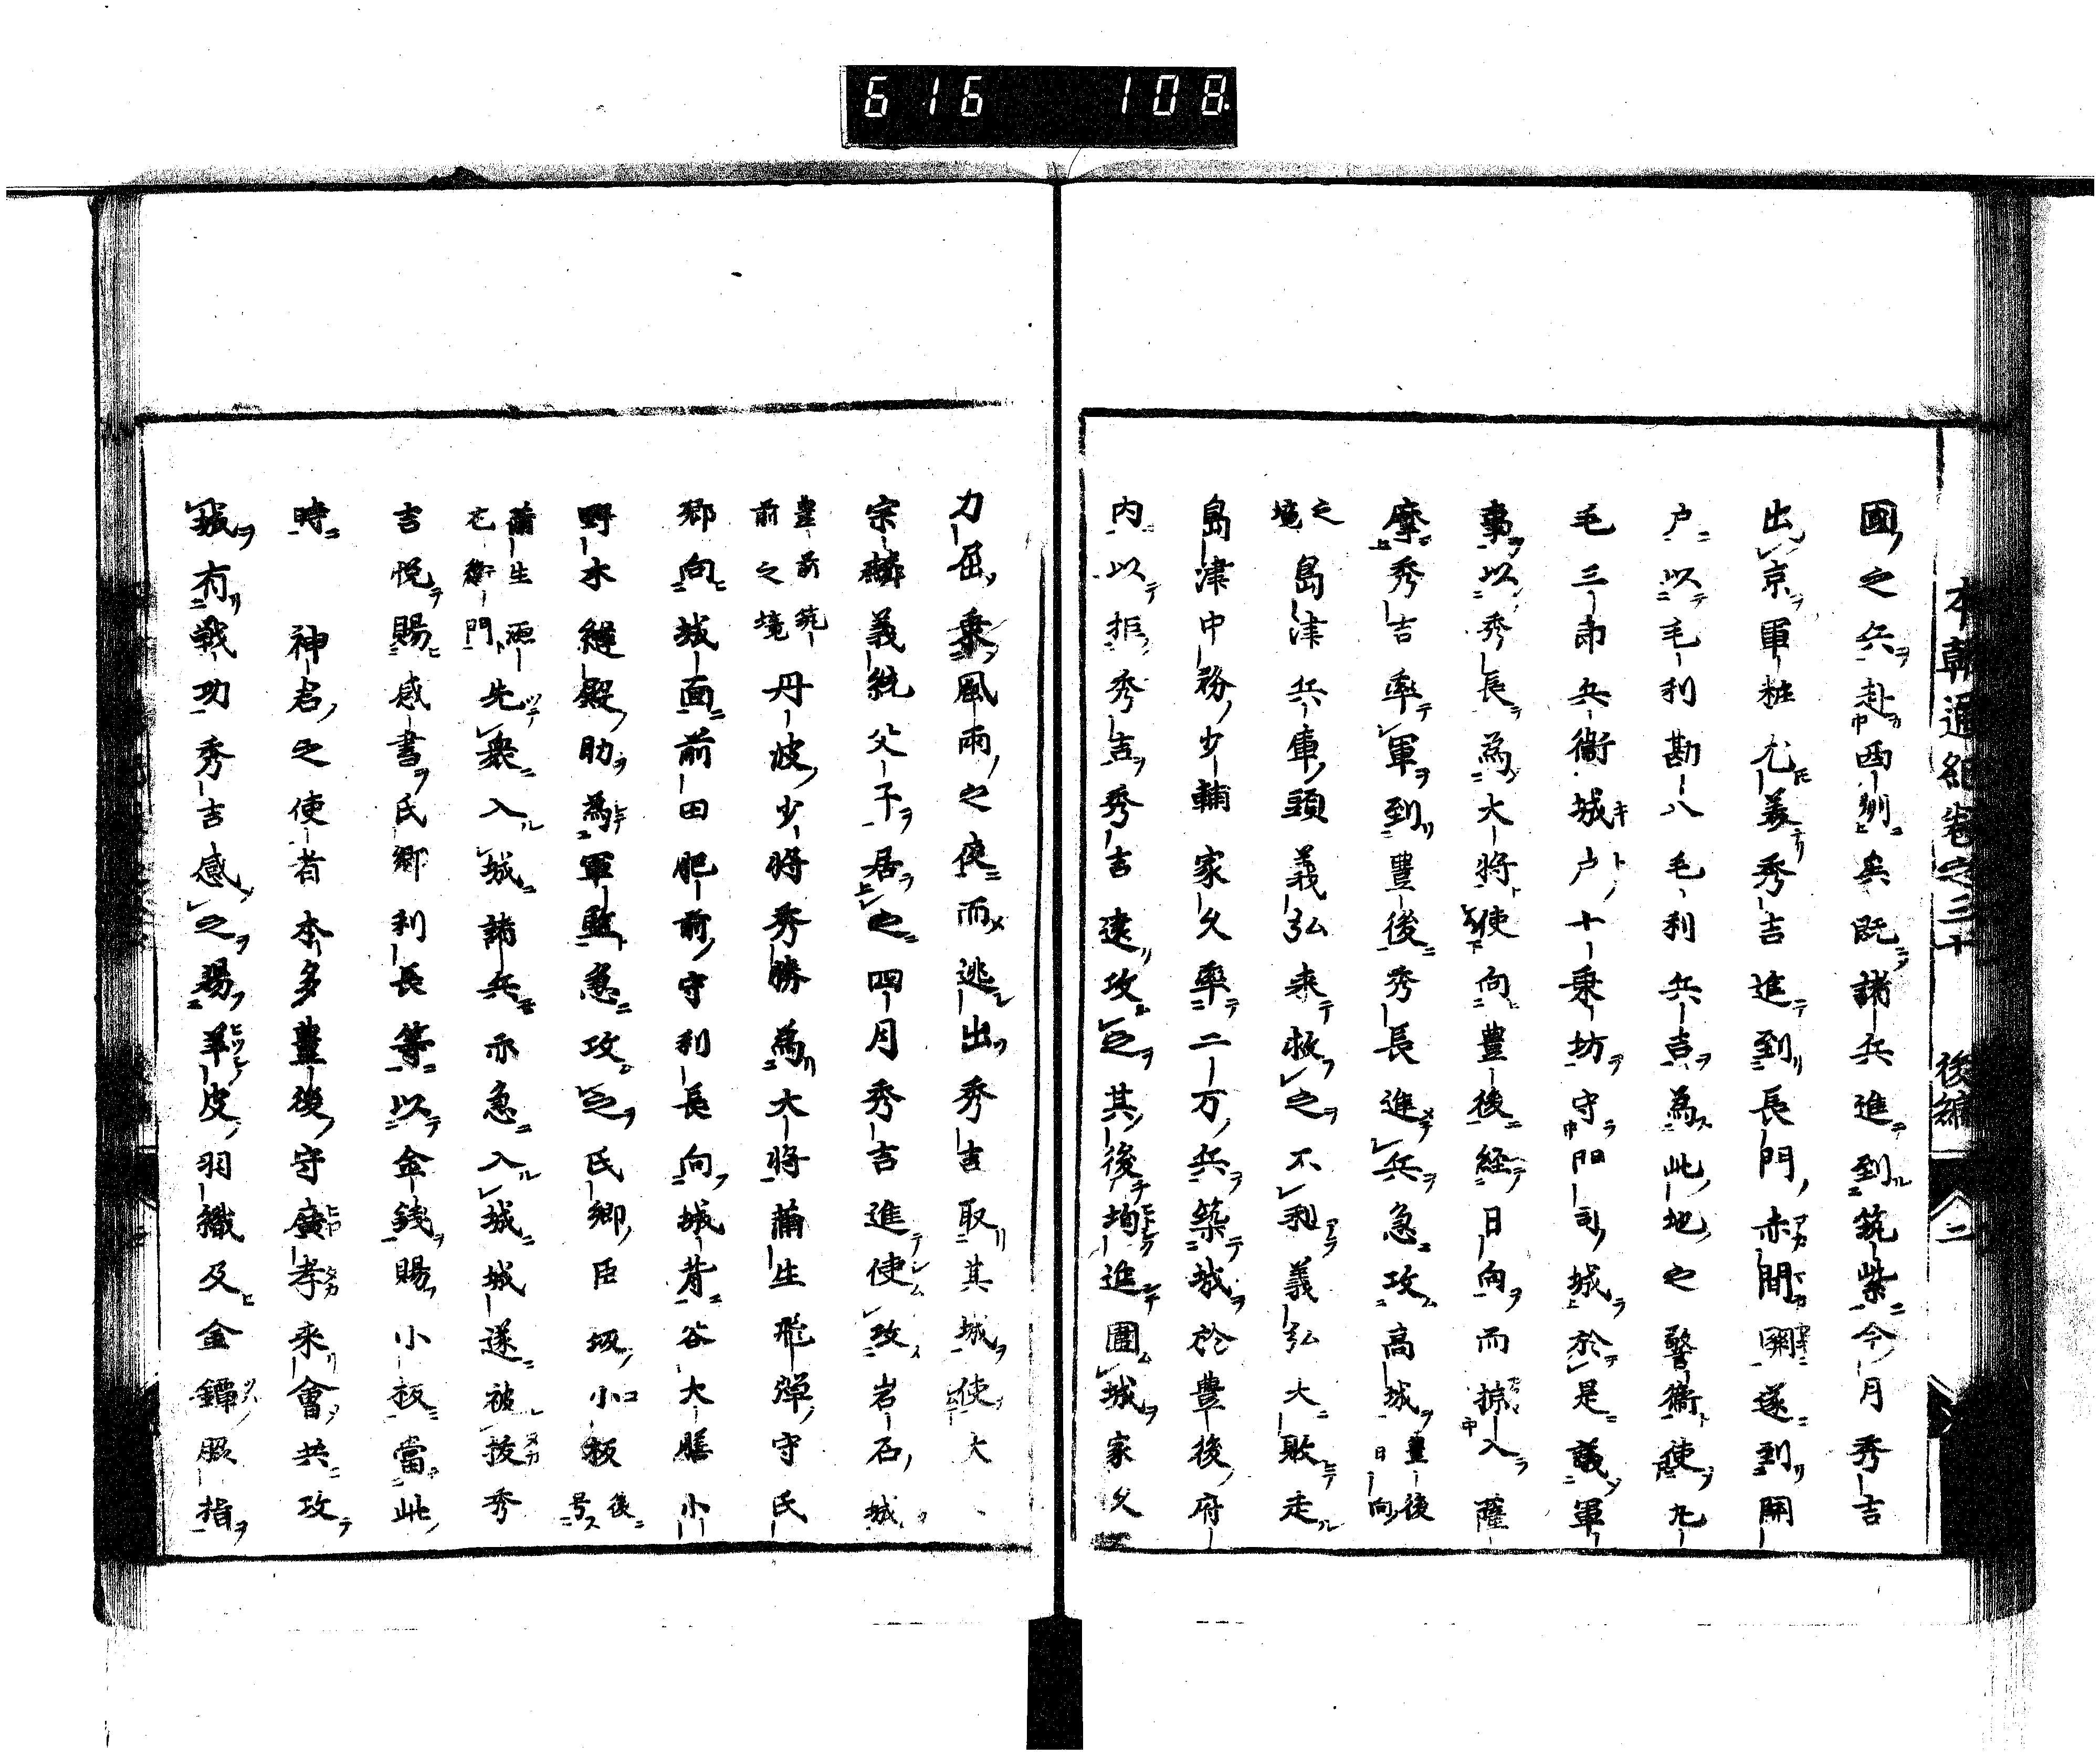 616 108
本朝通紀卷之三十 後編 二
國之兵赴西州矣既諸兵進到筑紫今月秀吉
出京軍粧尤美秀吉進到長門赤間関遂到関
戸以毛利勘八毛利兵吉為此地之警衛使九
毛三郎兵衛城戸十乗坊守門司城於是議軍
事以秀長為大将使向豊後経日向而掠入薩
摩秀吉率軍到豊後秀長進兵急攻高城豊後日向
之境島津兵庫頭義弘来救之不利義弘大敗走
島津中務少輔家久率二万兵築城於豊後府
内以拒秀吉秀吉遠攻之其後均進圍城家久
力屈乗風雨之夜而逃出秀吉取其城使大、
宗麟義統父子居之四月秀吉進使攻岩石城
豊前筑前之境丹波少将秀勝為大将蒲生飛弾守氏
郷向城面前田肥前守利長向城背谷大膳小
野木縫殿助為軍監急攻之氏郷臣坂小板後号ス
蒲生源左衛門先衆入城諸兵亦急入城城遂被抜秀
吉悦賜感書氏郷利長等以金銭賜小板當此
時 神君之使者本多豊後守廣孝来會共攻
城有戦功秀吉感之賜羊皮羽織及金鐔脇指